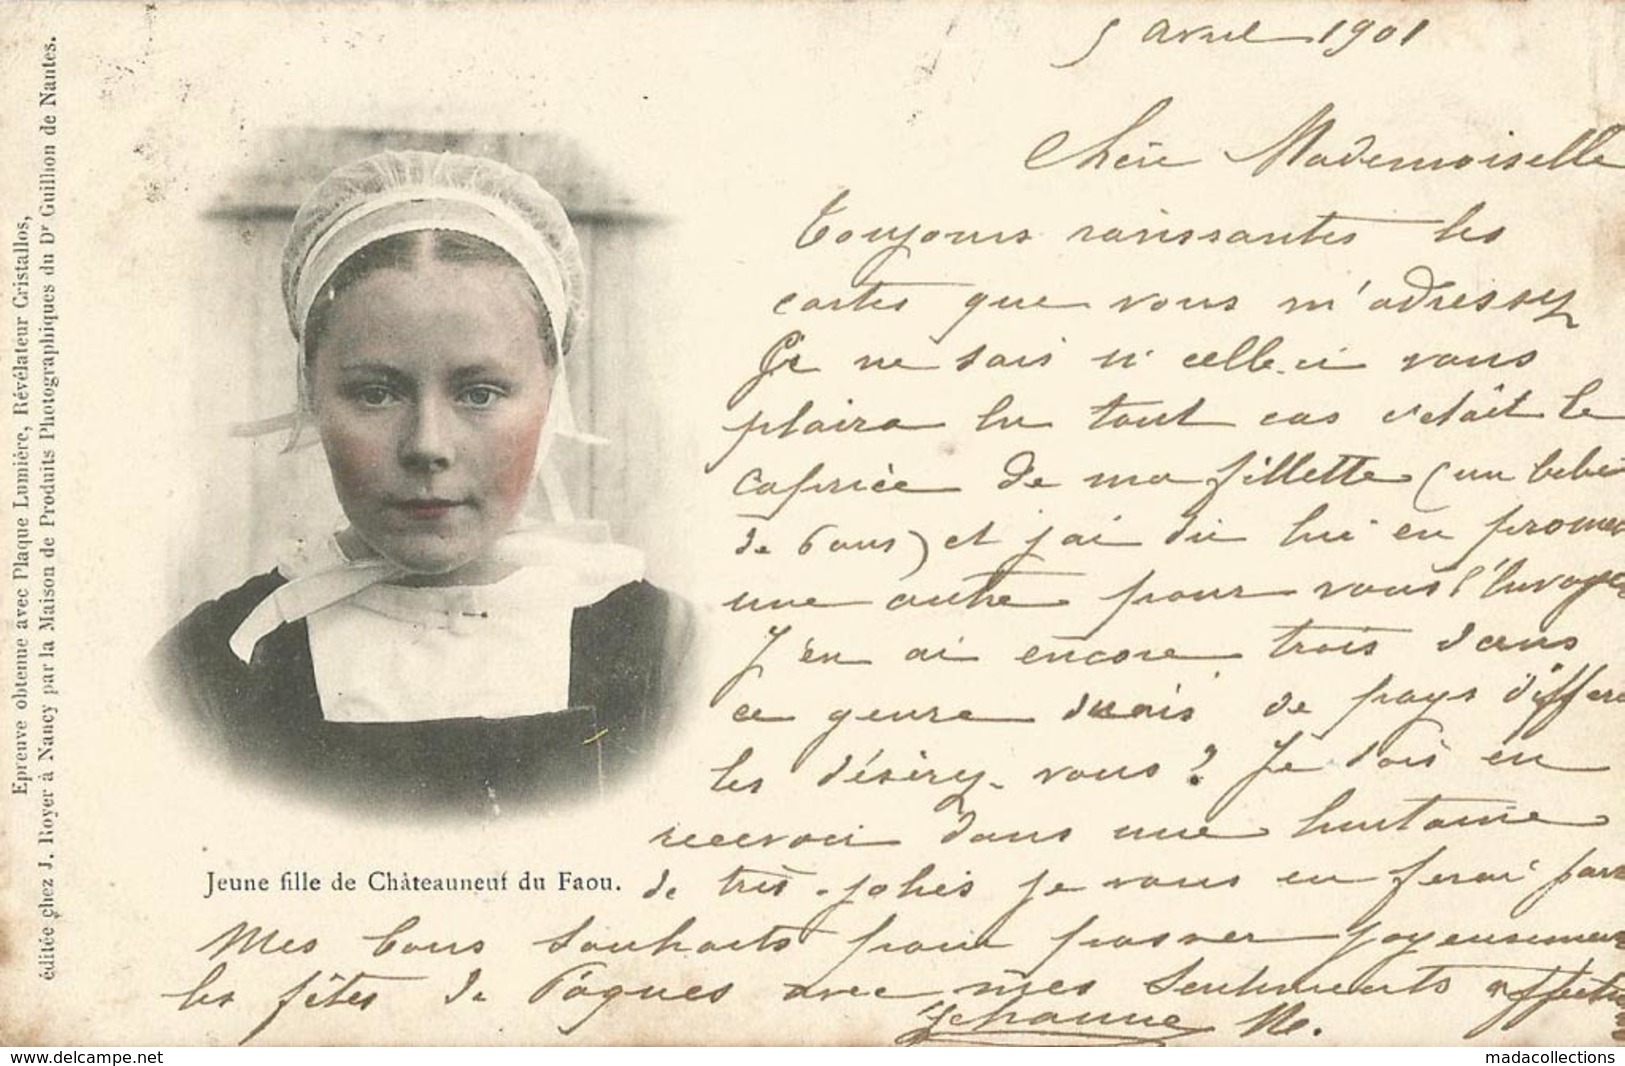 Epreuve obtenue avec Plaque Lumière, Révélateur Cristallos,
éditée chez J. Royer à Nancy par la Maison de Produits Photographiques du Dr Guilhon de Nantes.
5 avril 1901
Chère Mademoiselle
Toujours ravissantes les
cartes que vous m'adressez
Je ne sais si celle-ci vous
plaira En tout cas c'était le
caprice de ma fillette (un bébé
de 6 ans) et j'ai dû lui en
une autre pour vous l'envoyer
J'en ai encore trois dans
ce genre mais de pays
les désirez-vous? Je dois en
recevoir dans une huitaine
de très-jolies je vous en ferai
Jeune fille de Châteauneuf du Faou.
Mes bons souhaits pour passer
les fêtes de Pâques avec mes sentiments
Jehanne
madacollections
www.delcampe.net